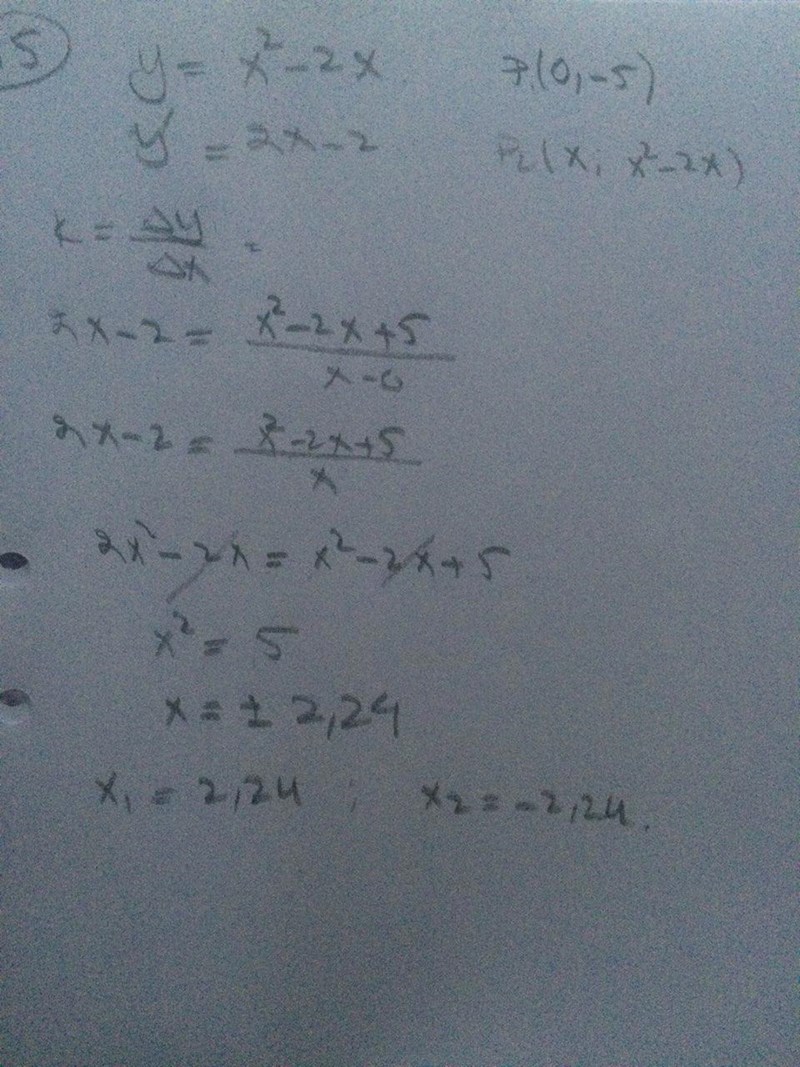 5
y = x² - 2x P₁(0, -5)
y' = 2x - 2 P₂(x, x² - 2x)
k = Δy/Δx =
2x - 2 = (x² - 2x + 5)/(x - 0)
2x - 2 = (x² - 2x + 5)/x
2x² - 2x = x² - 2x + 5
x² = 5
x = ± 2,24
x₁ = 2,24 ; x₂ = -2,24.